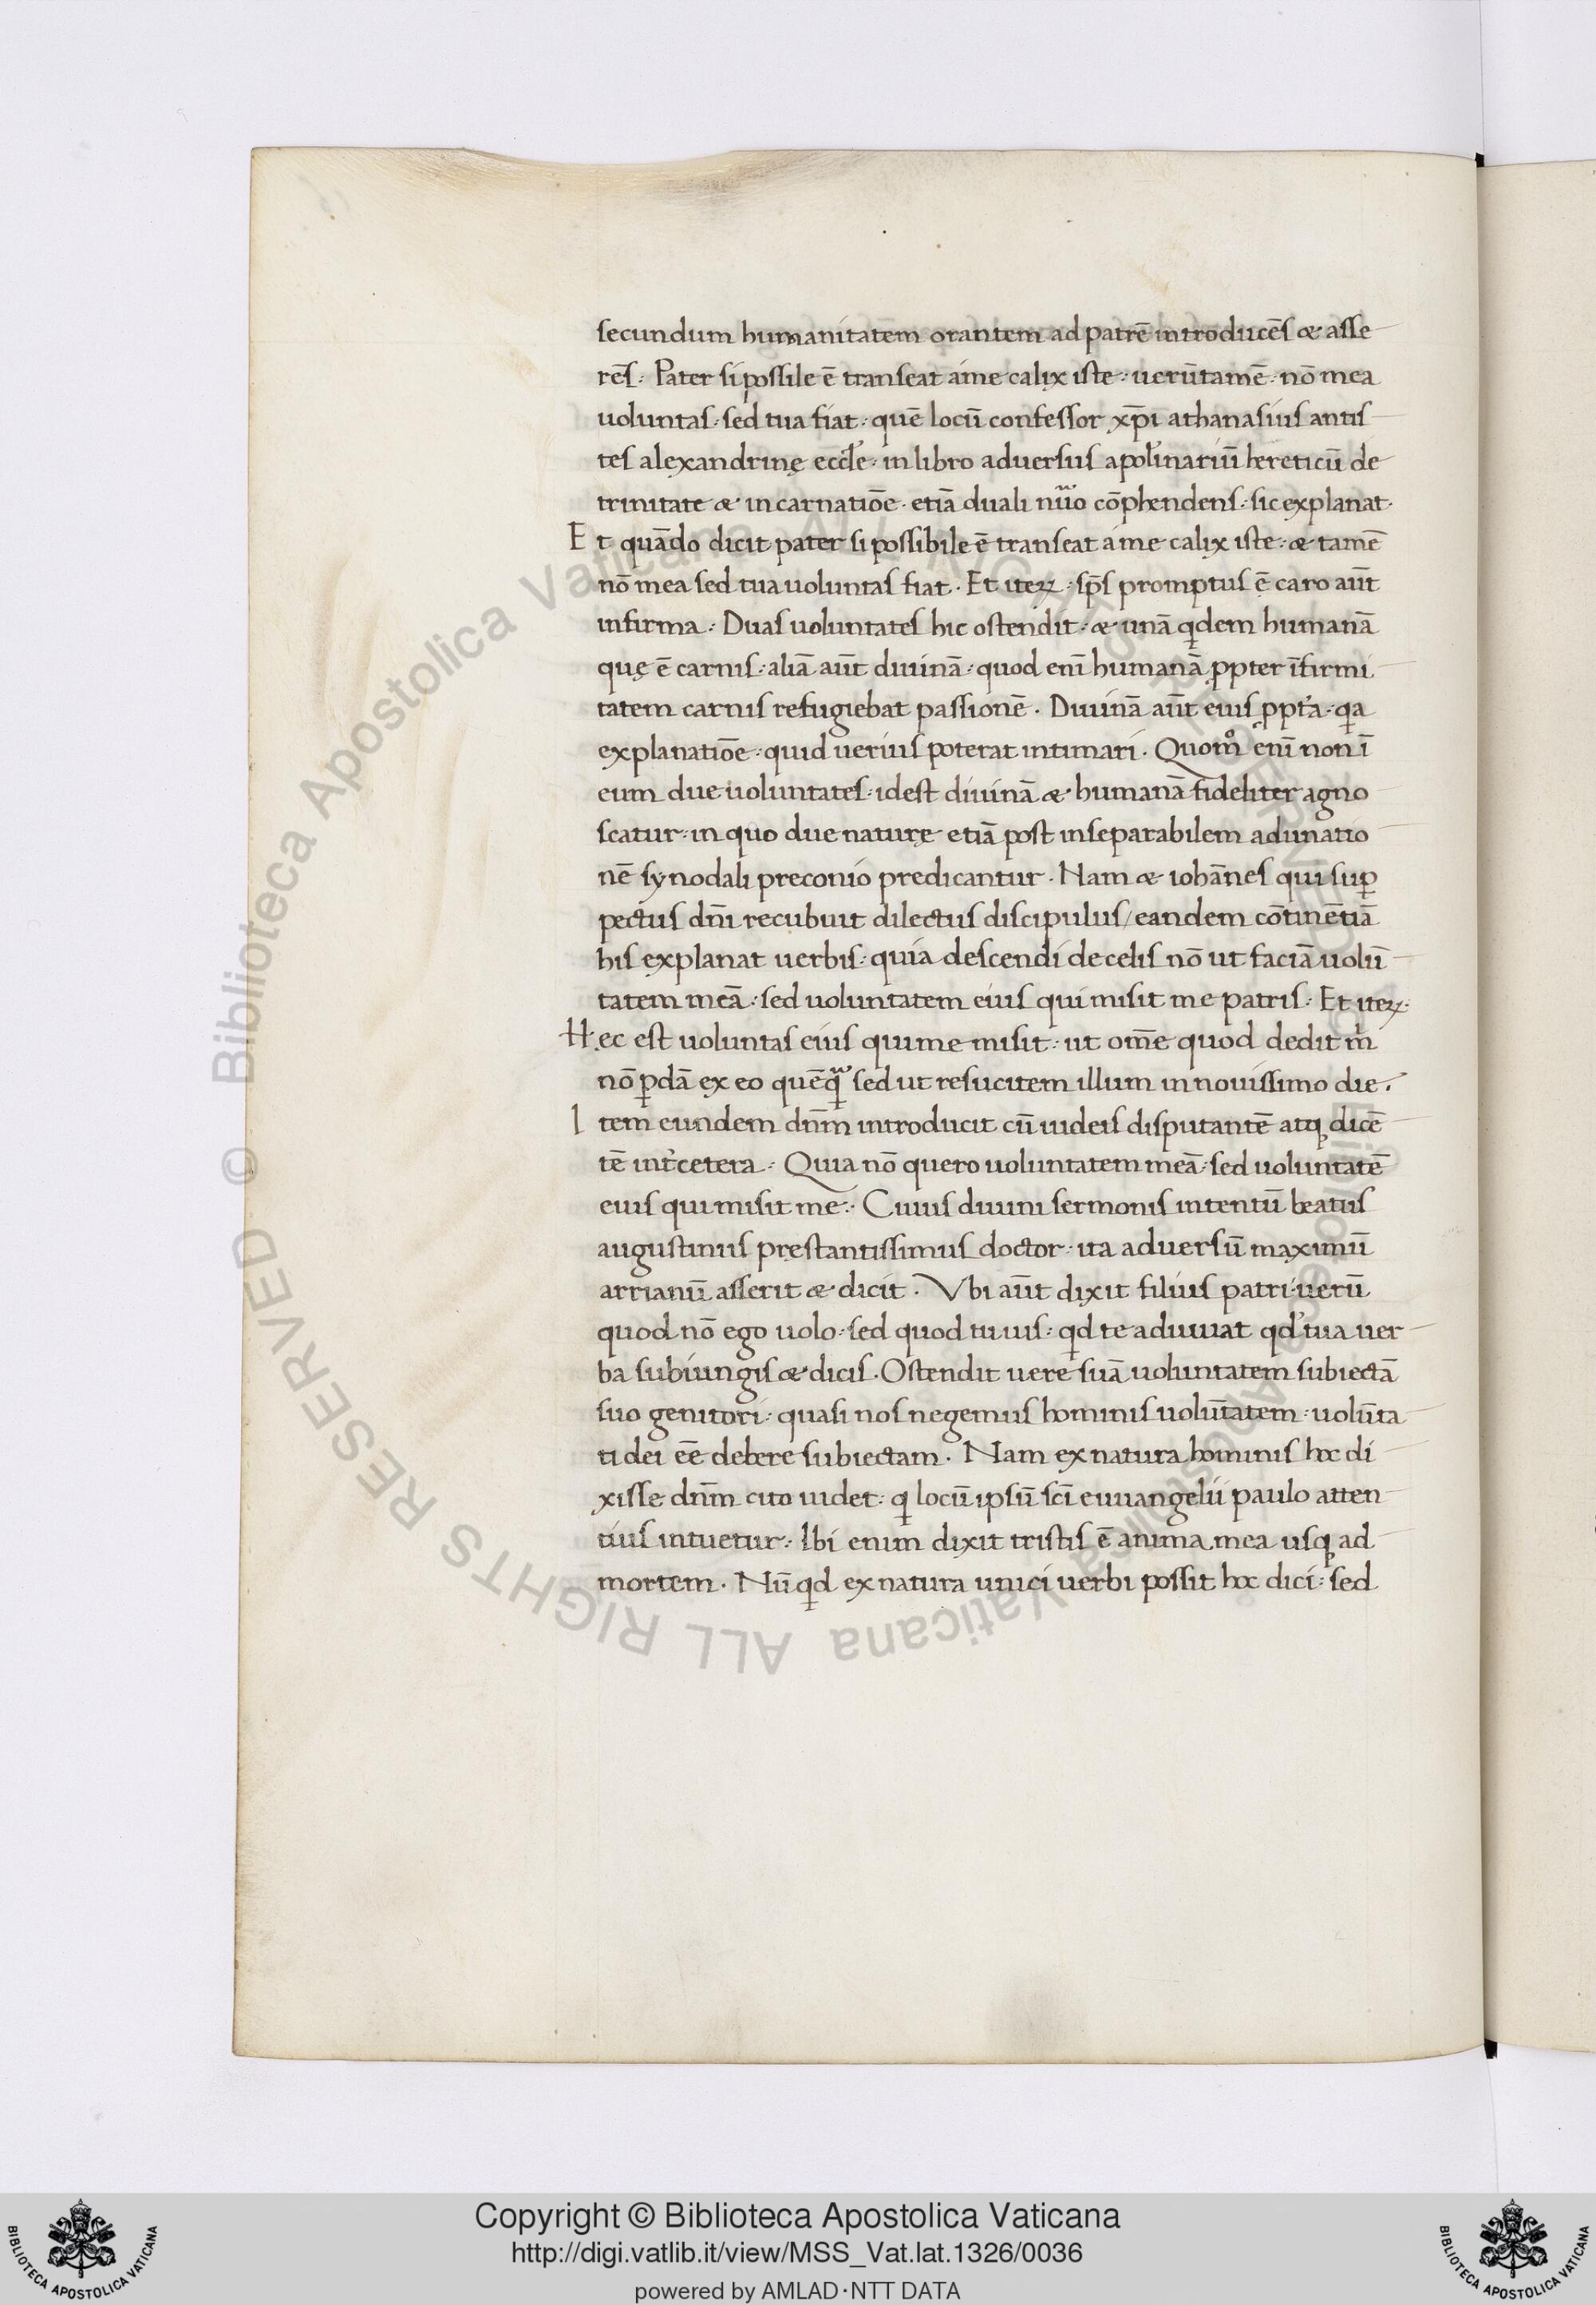 secundum humanitatem orantem ad patrē introducēs & asse
rēs: Pater si possile ē transeat áme calix iste: uerūtamē: nō mea
uoluntas: sed tua fiat: quē locū confessor xp̄i athanasius antis
tes alexandrinę eccl̄e: in libro aduersus apol̓inariū hereticū de
trinitate & incarnatiōe. etiā duali nūo cōphendens. sic explanat.
Et quādo dicit pater si possibile ē transeat áme calix iste: & tamē
nō mea sed tua uoluntas fiat. Et iteꝝ: sp̄s promptus ē caro aūt
infirma: Duas uoluntates hic ostendit: & unā qdem humanā
quę ē carnis: aliā aūt diuinā: quod enī humanā ꝓpter īfirmi
tatem carnis refugiebat passionē. Diuinā aūt eius ꝓpt̓a: qa
explanatiōe: quid uerius poterat intimari. Quom̊ enī non ī
eum due uoluntates: idest diuinā & humanā fideliter agno
scatur: in quo due naturę etiā post inseparabilem adunatio
nē synodali preconio predicantur. Nam & iohānes qui suꝑ
pectus dn̄i recubuit dilectus discipulus / eandem cōtinētiā
his explanat uerbis: quia descendi de celis nō ut faciā uolū
tatem meā: sed uoluntatem eius qui misit me patris: Et iteꝝ.
Hec est uoluntas eius qui me misit: ut om̄e quod dedit m̓
nō ꝑdā ex eo quēq̃ sed ut resucitem illum in nouissimo die.
Item eundem dn̄m introducit cū iudeis disputantē atq; dicē
tē int̓cetera: Quia nō quero uoluntatem meā: sed uoluntatē
eius qui misit me: Cuius diuini sermonis intentū beatus
augustinus prestantissimus doctor: ita aduersū maximū
arrianū asserit & dicit. Vbi aūt dixit filius patri: uerū
quod nō ego uolo: sed quod tu uis: qd te adiuuat qd̓ tua uer
ba subiungis & dicis. Ostendit uere suā uoluntatem subiectā
suo genitori: quasi nos negemus hominis uolūtatem: uolūta
ti dei ēē debere subiectam. Nam ex natura hominis hoc di
xisse dn̄m cito uidet: q locū ipsū sc̄i euuangelii paulo atten
tius intuetur: Ibi enim dixit tristis ē anima mea usq; ad
mortem. Nūqd ex natura unici uerbi possit hoc dici: sed
© Biblioteca Apostolica Vaticana ALL RIGHTS RESERVED
Copyright © Biblioteca Apostolica Vaticana
http://digi.vatlib.it/view/MSS_Vat.lat.1326/0036
powered by AMLAD·NTT DATA
BIBLIOTECA APOSTOLICA VATICANA
BIBLIOTECA APOSTOLICA VATICANA